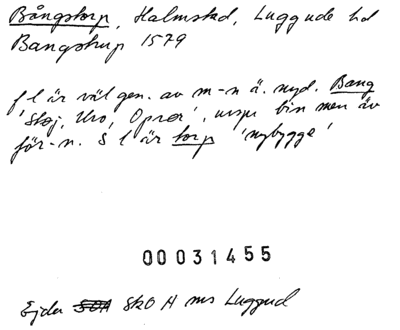 Bångstorp, Halmstad, Luggude hd
Bangstrup 1579
f l är väl gen. av m-n ä. nyd. Bang
'Støj, Uro, Oprør', urspr bin men äv
för-n. S l är torp 'nybygge'
00031455
Ejder SOA SkO A ms Luggud